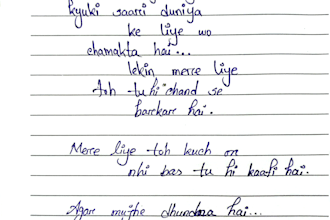 kyuki saari duniya
ke liye wo
chamakta hai...
lekin mere liye
toh tu hi chand se
barkarr hai.
Mere liye toh kuch or
nhi bas tu hi kaafi hai.
Agar mujhe dhundna hai...